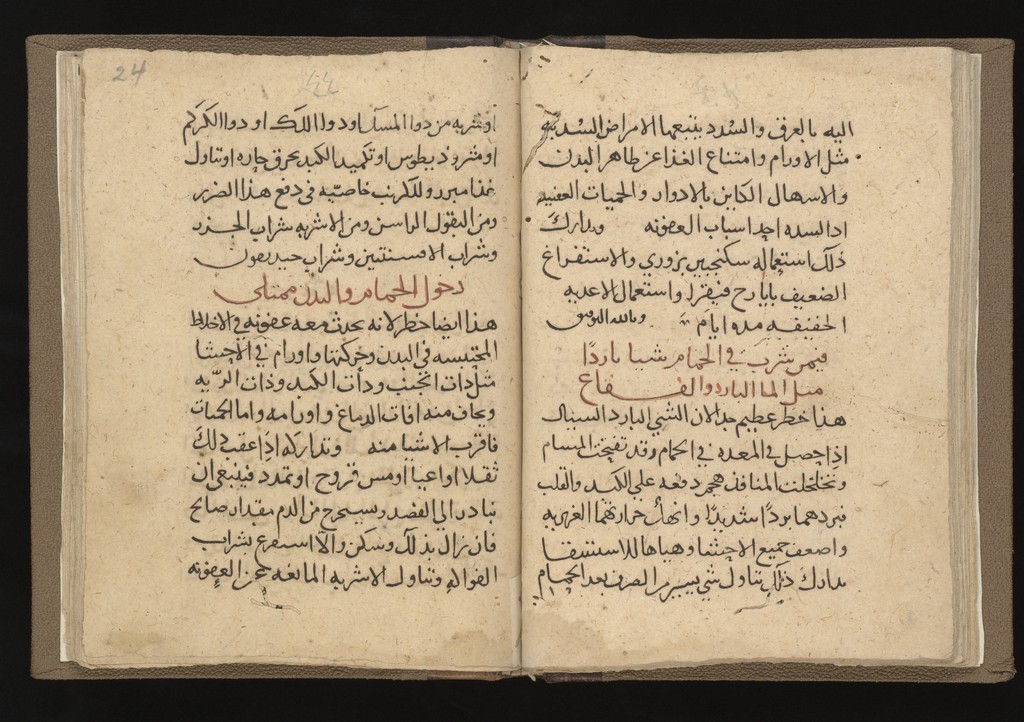 اليه بالعرق والسدد يتبعها الامراض السدديه
مثل الاورام وامتناع الغذا عن ظاهر البدن
والاسهال الكاين بالادوار والحميات العفنيه
اذ السده احد اسباب العفونه وتدارك
ذلك استعماله سكنجبين بزوري والاستفراغ
الضعيف بايارج فيقرا واستعمال الاغديه
الخفيفه مده ايام وبالله التوفيق
فيمن شرب في الحمام شيا باردا
مثل الما البارد والفقاع
هذا خطر عظيم جدا لان الشي البارد السيال
اذا حصل في المعده في الحمام وقد تفتحت المسام
وتخلخلت المنافذ هجم دفعه علي الكبد والقلب
فبردهما بردا شديدا وانهك حرارتهما الغريزيه
واضعف جميع الاحشا وهياها للاستسقا
تدارك ذلك تناول شي يسير من الصرف بعد الحمام
24
او شربه من دوا المسك او دوا اللك او دوا الكركم
او مثروديطوس او تكميد الكبد بخرق حاره او تناول
غذا مبزر وللكرنب خاصيه في دفع هذا الضرر
ومن البقول ومن الاشربه شراب الجزر
وشراب الافسنتين وشراب
دخول الحمام والبدن ممتلي
هذا ايضا خطر لانه يحدث معه عفونه في الاخلاط
المحتبسه في البدن وحركتها واورام في الاحشا
مثل ذات الجنب وذات الكبد وذات الريه
ويخاف منه افات الدماغ واورامه واما الحميات
فاقرب الاشيا منه وتداركه اذا عقب ذلك
ثقلا او اعيا او مس قروح او تمدد فينبغي ان
يبادر الي الفصد ويستخرج من الدم مقدار صالح
فان زال بذلك وسكن والا استفرغ بشراب
الفواكه وتناول الاشربه المانعه عن العفونه